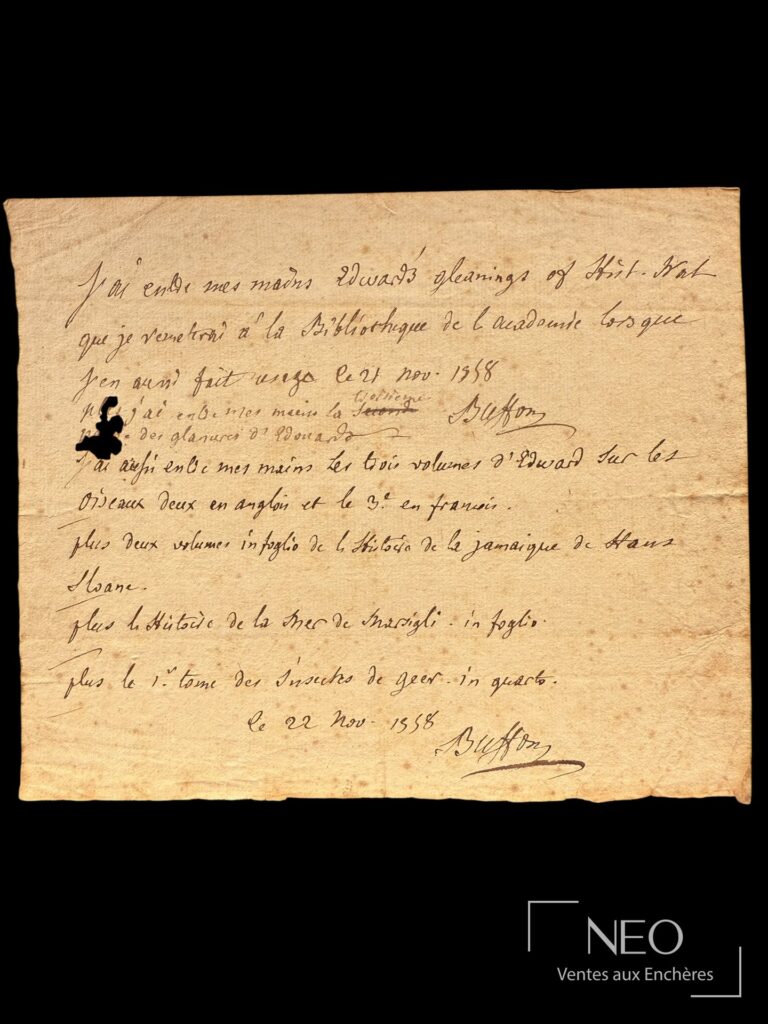 J'ai entre mes mains Edward's gleanings of Hist. Nat
que je remetrai à la Bibliotheque de l'academie lorsque
J'en aurai fait usage le 21 nov. 1758
j'ai entre mes mains la troisieme Seconde Buffon
des glanures d'Edouards
J'ai aussi entre mes mains les trois volumes d'Edward sur les
Oiseaux deux en anglois et le 3e. en francois.
plus deux volumes in foglio de l'Histoire de la jamaique de Hans
Sloane.
plus l'Histoire de la Mer de Marsigli. in foglio.
plus le 1er. tome des Insectes de geer. in quarto.
le 22 Nov. 1758
Buffon
NEO
Ventes aux Enchères